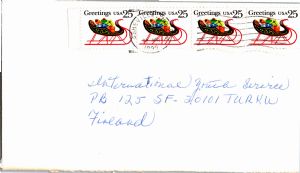 Greetings USA 25 Greetings USA 25 Greetings USA 25 Greetings USA 25
International Youth Service
PB 125 SF-20101 TURKU
Finland